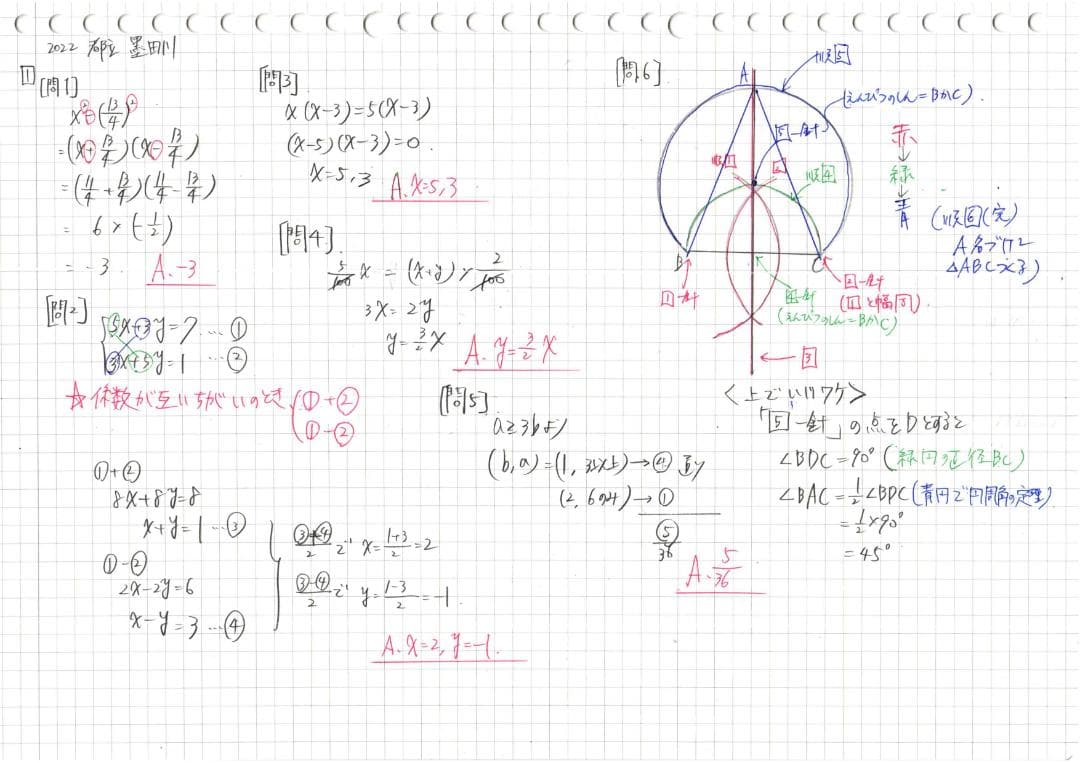 2022 都立 墨田川
1
[問1]
x²-(13/4)²
=(x+13/4)(x-13/4)
=(11/4+13/4)(11/4-13/4)
= 6×(-1/2)
= -3. A. -3
[問2]
5x+3y=7 … ①
3x+5y=1 … ②
☆係数が互いちがいのとき ①+②
①-②
①+②
8x+8y=8
x+y=1 … ③
①-②
2x-2y=6
x-y=3 … ④
③+④/2 で x=1+3/2=2
③-④/2 で y=1-3/2=-1.
A. x=2, y=-1.
[問3]
x(x-3)=5(x-3)
(x-5)(x-3)=0.
x=5,3 A. x=5,3
[問4]
5/100 x = (x+y)×2/100
3x=2y
y=3/2 x
A. y=3/2 x
[問5]
a≧3bより
(b,a)=(1, 3以上)→④
(2, 6のみ)→①
⑤/36
A. 5/36
[問6]
A
順5
(えんぴつのしん=BかC).
5-針
1
2
順4
B
C
1-針
2-針
(1と幅同)
4-針
(えんぴつのしん=BかC)
3
赤
↓
緑
↓
青
(順6(完)
A名づけて
△ABC
<上でいいワケ>
「5-針」の点をDとすると
∠BDC=90°(緑円の直径BC)
∠BAC=1/2∠BDC(青円で円周角の定理)
=1/2×90°
=45°